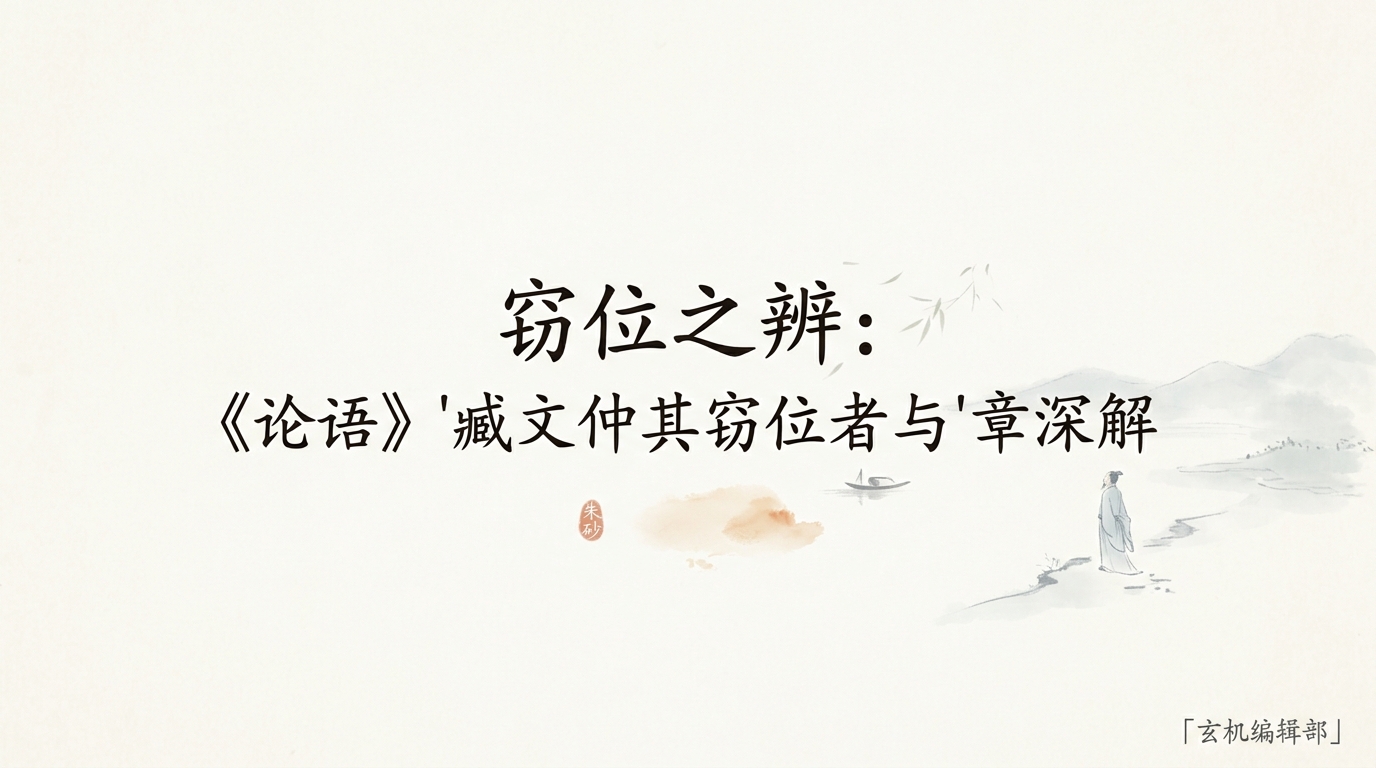 窃位之辨：
《论语》'臧文仲其窃位者与'章深解
朱砂
「玄机编辑部」